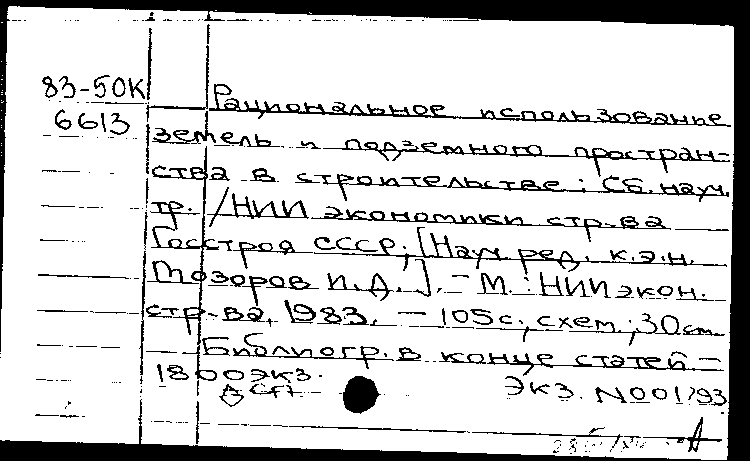 83-50К
6613
Рациональное использование
земель и подземного простран-
ства в строительстве: Сб. науч.
тр. / НИИ экономики стр-ва
Госстроя СССР; [Науч. ред. к.э.н.
И.Д.]. - М.: НИИ экон.
стр-ва, 1983. - 105с., схем.; 30см.
Библиогр. в конце статей -
1800экз.
Экз. N001793